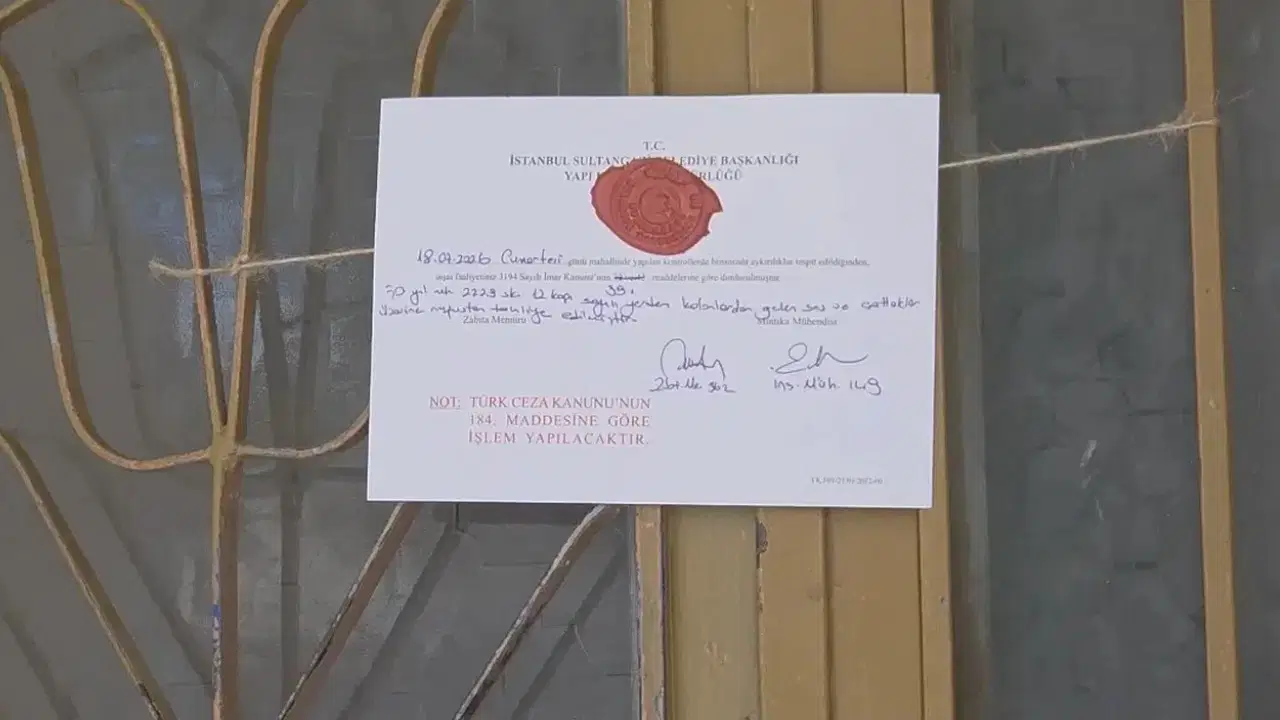 T.C.
İSTANBUL SULTANG BELEDİYE BAŞKANLIĞI
YAPI RLÜĞÜ
18.07.2026 Cumartesi günü mahallinde yapılan kontrollerde binanızda aykırılıklar tespit edildiğinden,
inşai faaliyetiniz 3194 Sayılı İmar Kanunu'nun maddelerine göre durdurulmuştur.
39.
50 yıl mh 2229 sk. 12 kapı sayılı yerden kolonlardan gelen ses ve çatlaklar
üzerine tahliye edilmiştir.
Zabıta Memuru Mıntıka Mühendisi
Zbt. Me. 962 İnş. Müh. 1149
NOT: TÜRK CEZA KANUNU'NUN
184. MADDESİNE GÖRE
İŞLEM YAPILACAKTIR.